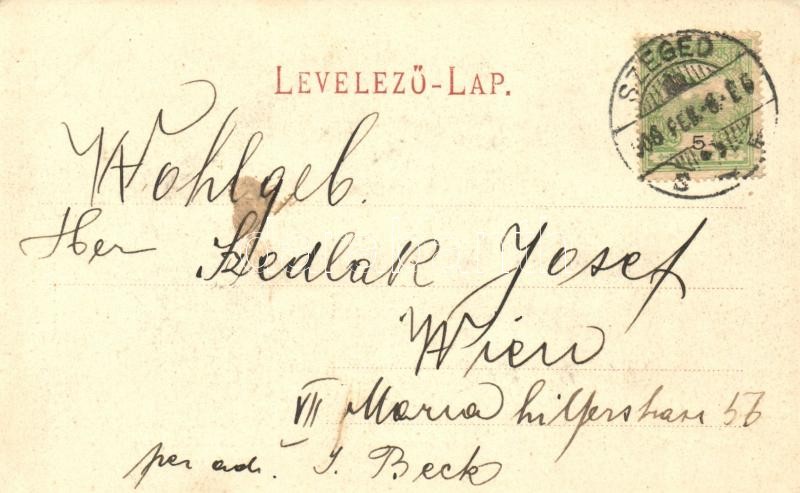 LEVELEZŐ-LAP.
SZEGED
5
Wohlgeb.
Her Szedlak Josef
Wien
VII Maria hilferstrasse 56
per adr. J. Beck